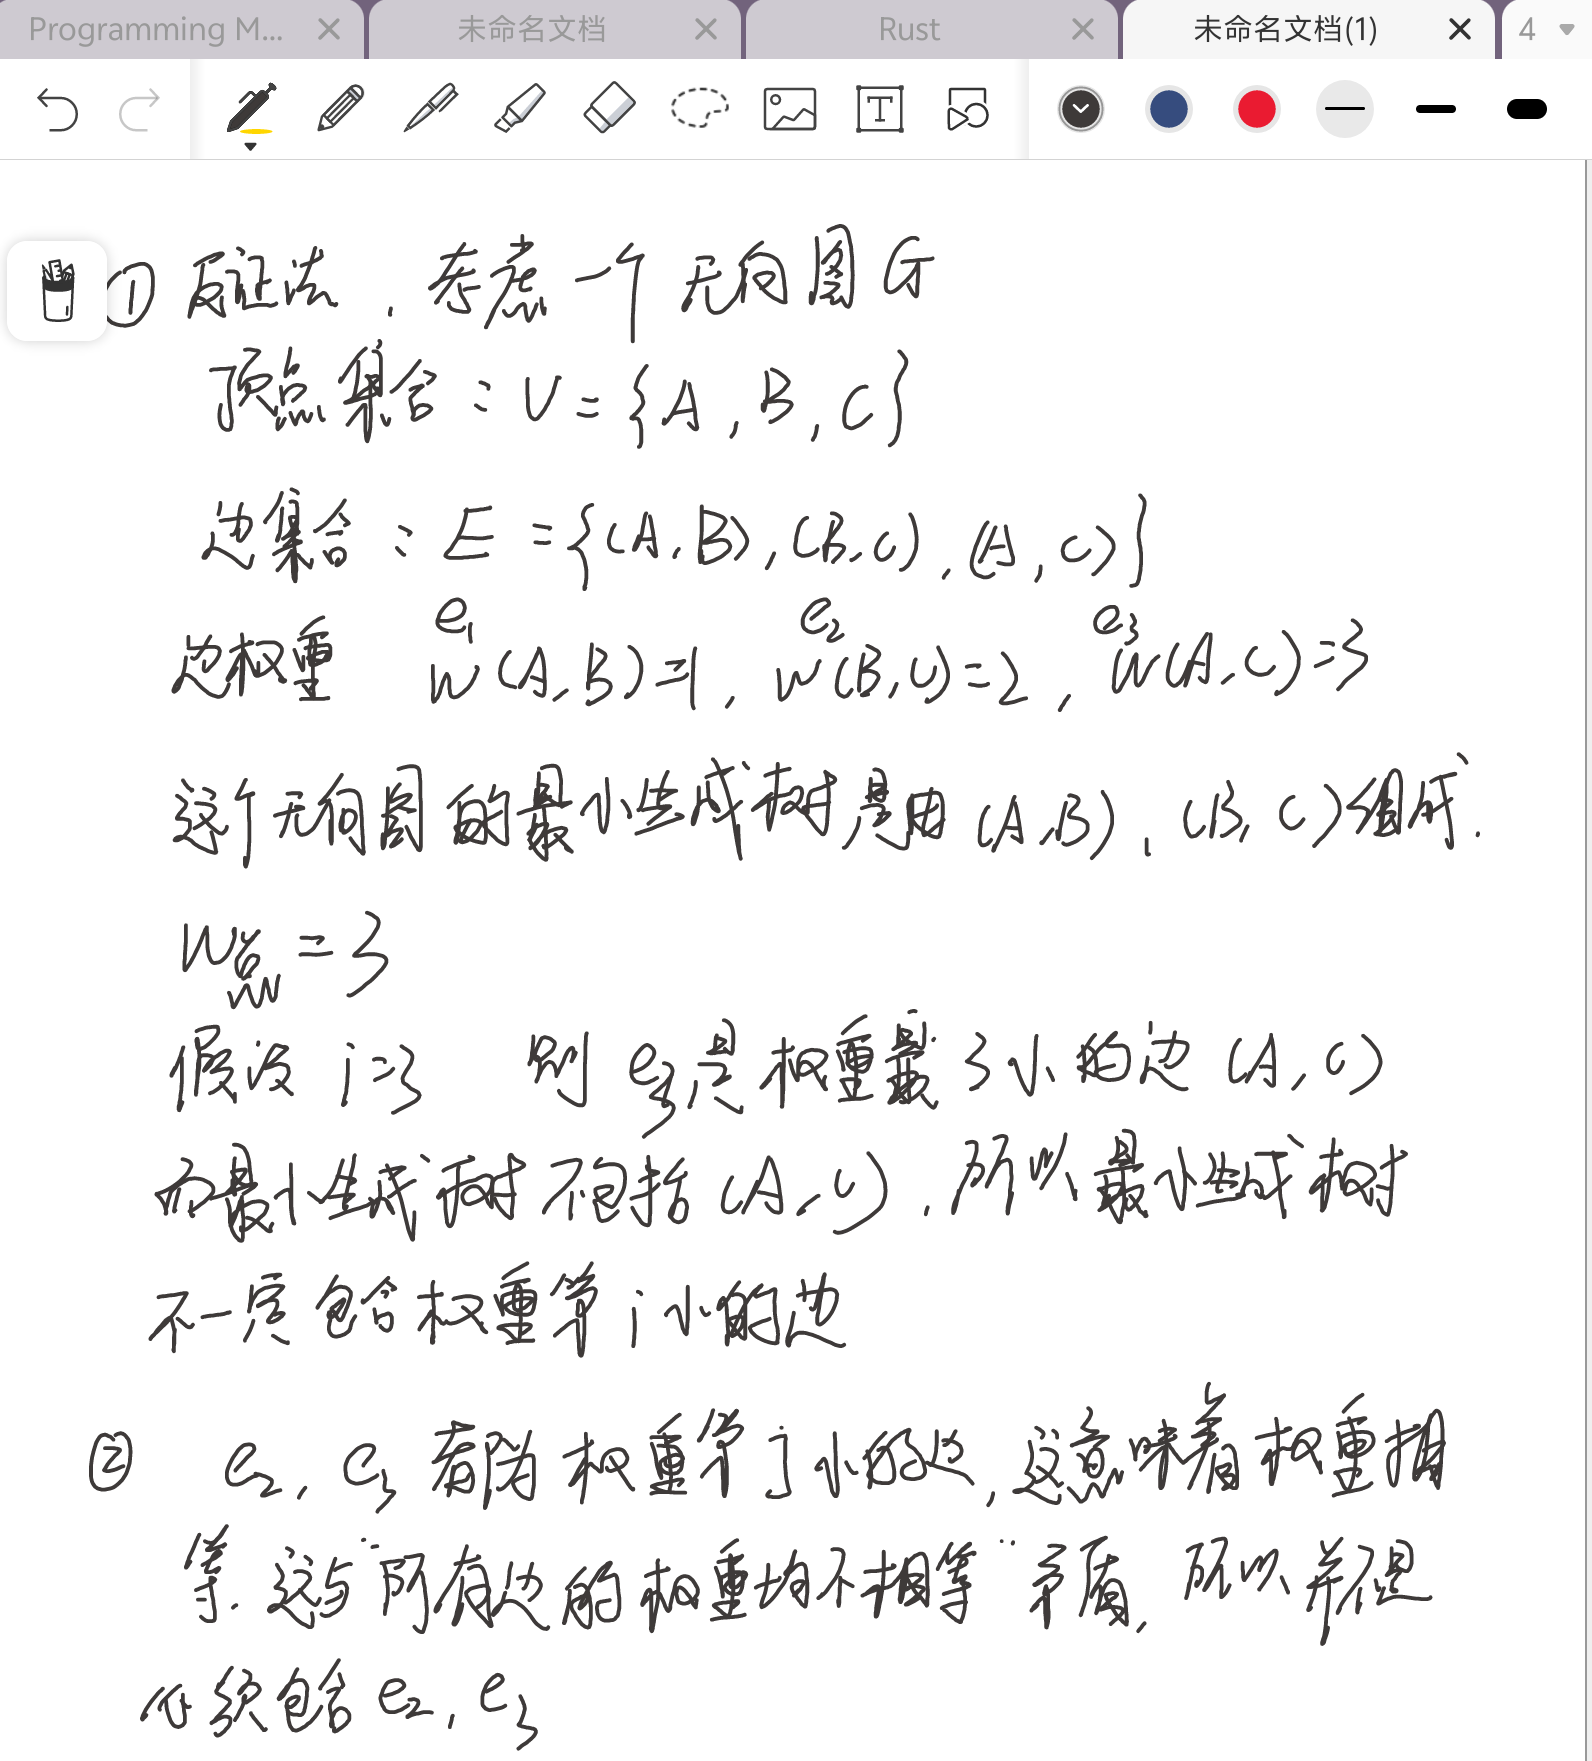 Programming M... 未命名文档 Rust 未命名文档(1) 4
T
① 反证法，考虑一个无向图G
顶点集合：V={A,B,C}
边集合：E={(A,B),(B,C),(A,C)}
e1 e2 e3
边权重 w(A,B)=1, w(B,C)=2, w(A,C)=3
这个无向图的最小生成树是由(A,B),(B,C)组成.
W总=3
假设 i=3 则e3是权重最3小的边(A,C)
而最小生成树不包括(A,C),所以最小生成树
不一定包含权重第i小的边
② e2,e3若皆为权重第j小的边,这意味着权重相
等.这与"所有边的权重均不相等"矛盾,所以并不是
必须包含e2,e3